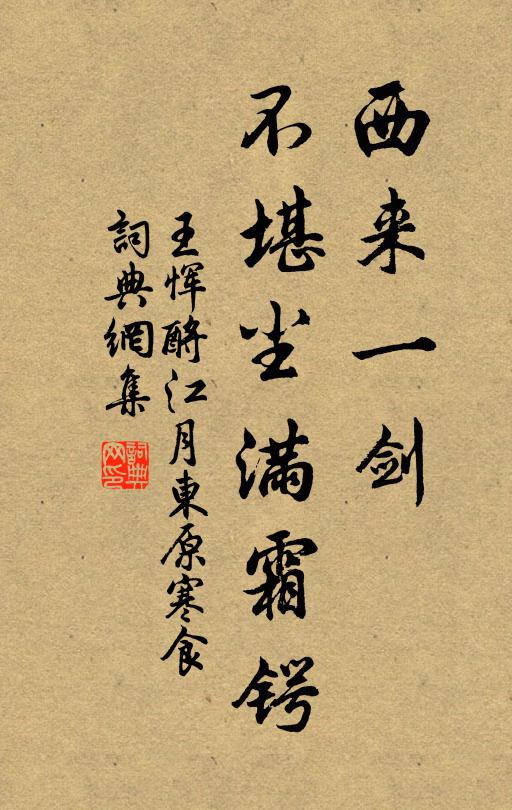 西来一剑
不堪尘满霜锷
王恽酹江月東原寒食
詞典網集
詞典網印